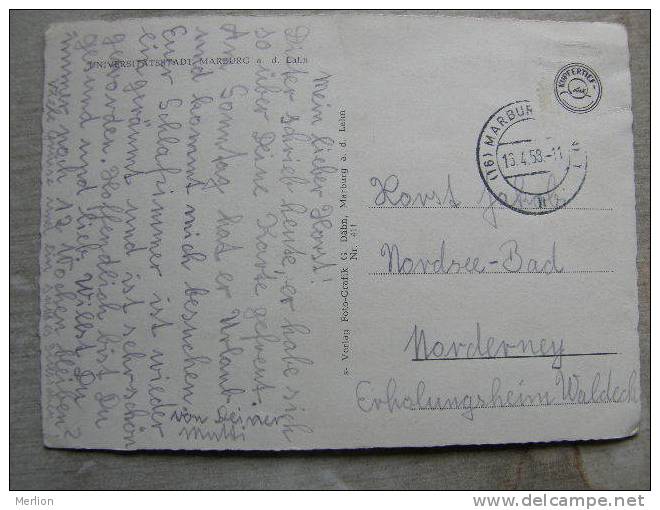 UNIVERSITÄTSSTADT MARBURG a. d. Lahn
Mein lieber Horst!
Dieter schrieb heute, er habe sich
so über Deine Karte gefreut.
Am Sonntag hat er Urlaub
und kommt mich besuchen.
Euer Schlafzimmer ist wieder
eingeräumt und ist sehr schön
geworden. Hoffendlich bist Du
gesund und lieb. Willst Du
immer noch 12 Wochen bleiben?
Liebe Grüsse und ein
von Deiner
Mutti
s- Verlag Foto-Grafik G. Dähn, Marburg a. d. Lahn
Nr. 411
KUPFERTIEF-
(16) MARBUR
15.4.58.-11
Horst
Nordsee-Bad
Norderney
Erholungsheim Waldeck
Merlion
http://www.delcampe.net